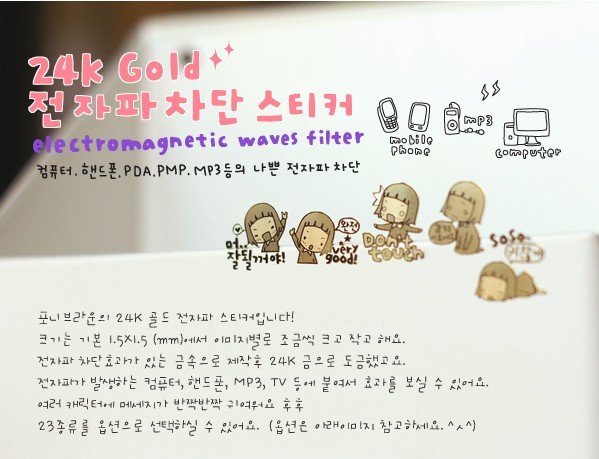 24K Gold
전자파차단 스티커
electromagnetic waves filter
컴퓨터, 핸드폰, PDA, PMP, MP3등의 나쁜 전자파 차단
mobile phone
mp3
computer
뭐.. 잘될꺼야!
완전
very good!
Don't touch
soso..
포니브라운의 24K 골드 전자파 스티커입니다!
크기는 기본 1.5X1.5 (mm)에서 이미지별로 조금씩 크고 작고 해요.
전자파 차단효과가 있는 금속으로 제작후 24K 금으로 도금했고요.
전자파가 발생하는 컴퓨터, 핸드폰, MP3, TV 등에 붙여서 효과를 보실 수 있어요.
여러 캐릭터에 메세지가 반짝반짝 귀여워요 후후
23종류를 옵션으로 선택하실 수 있어요. (옵션은 아래이미지 참고하세요. ^ㅅ^)